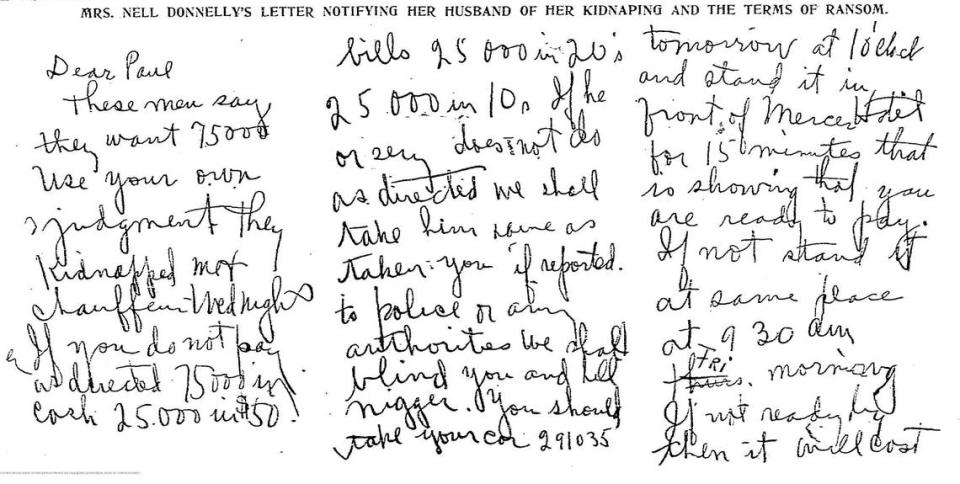 MRS. NELL DONNELLY'S LETTER NOTIFYING HER HUSBAND OF HER KIDNAPING AND THE TERMS OF RANSOM.
Dear Paul
These men say
they want 75000
Use your own
judgment They
kidnapped me &
chauffeur Wed night
If you do not pay
as directed 75000 in
cash 25.000 in $50.
bills 25 000 in 20's
25 000 in 10s If he
or does not do
as directed we shall
take him same as
taken you if reported.
to police or any
authorities we shall
blind you and kill
nigger. You should
take your car 291035
tomorrow at 10 o'clock
and stand it in
front of Mercer
for 15 minutes that
so showing that you
are ready to pay.
If not stand it
at same place
at 9 30 am
Fri
thurs. morning
If not ready by
then it will cost